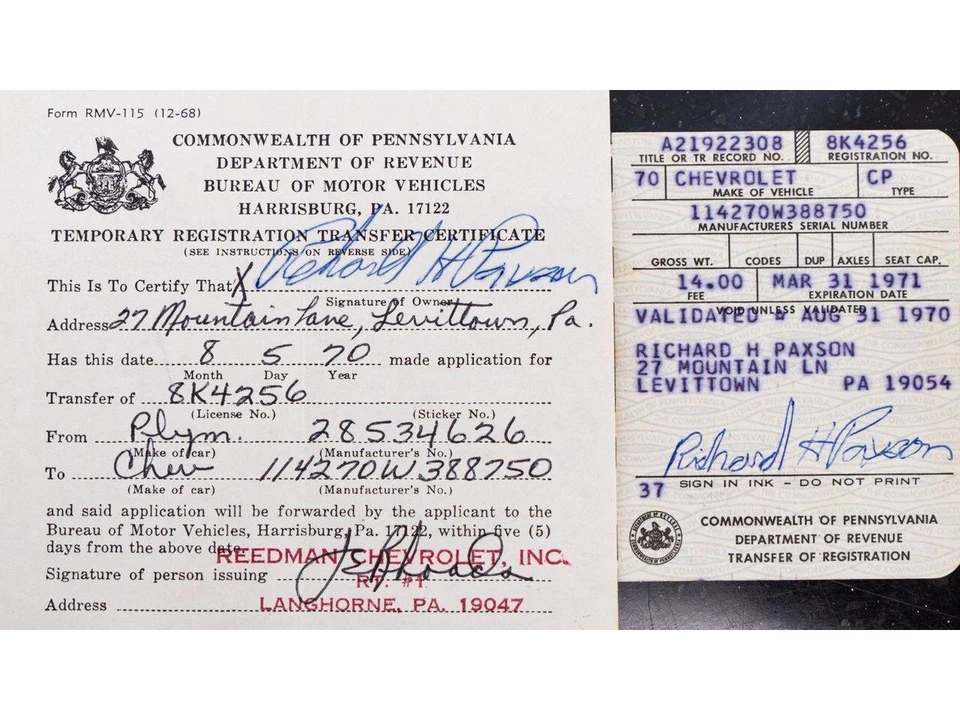 Form RMV-115 (12-68)
COMMONWEALTH OF PENNSYLVANIA
DEPARTMENT OF REVENUE
BUREAU OF MOTOR VEHICLES
HARRISBURG, PA. 17122
TEMPORARY REGISTRATION TRANSFER CERTIFICATE
(SEE INSTRUCTIONS ON REVERSE SIDE)
This Is To Certify That X Richard H Paxson
Signature of Owner
Address 27 Mountain Lane, Levittown, Pa.
Has this date 8 5 70 made application for
Month Day Year
Transfer of 8K4256
(License No.) (Sticker No.)
From Plym. 28534626
(Make of car) (Manufacturer's No.)
To Chev 114270W388750
(Make of car) (Manufacturer's No.)
and said application will be forwarded by the applicant to the
Bureau of Motor Vehicles, Harrisburg, Pa. 17122, within five (5)
days from the above date.
REEDMAN CHEVROLET, INC.
Signature of person issuing
RT. #1
Address LANGHORNE, PA. 19047
A21922308 8K4256
TITLE OR TR RECORD NO. REGISTRATION NO.
70 CHEVROLET CP
MAKE OF VEHICLE TYPE
114270W388750
MANUFACTURERS SERIAL NUMBER
GROSS WT. CODES DUP AXLES SEAT CAP.
14.00 MAR 31 1971
FEE EXPIRATION DATE
VOID UNLESS VALIDATED
VALIDATED AUG 31 1970
RICHARD H PAXSON
27 MOUNTAIN LN
LEVITTOWN PA 19054
Richard H Paxson
37 SIGN IN INK – DO NOT PRINT
COMMONWEALTH OF PENNSYLVANIA
DEPARTMENT OF REVENUE
TRANSFER OF REGISTRATION